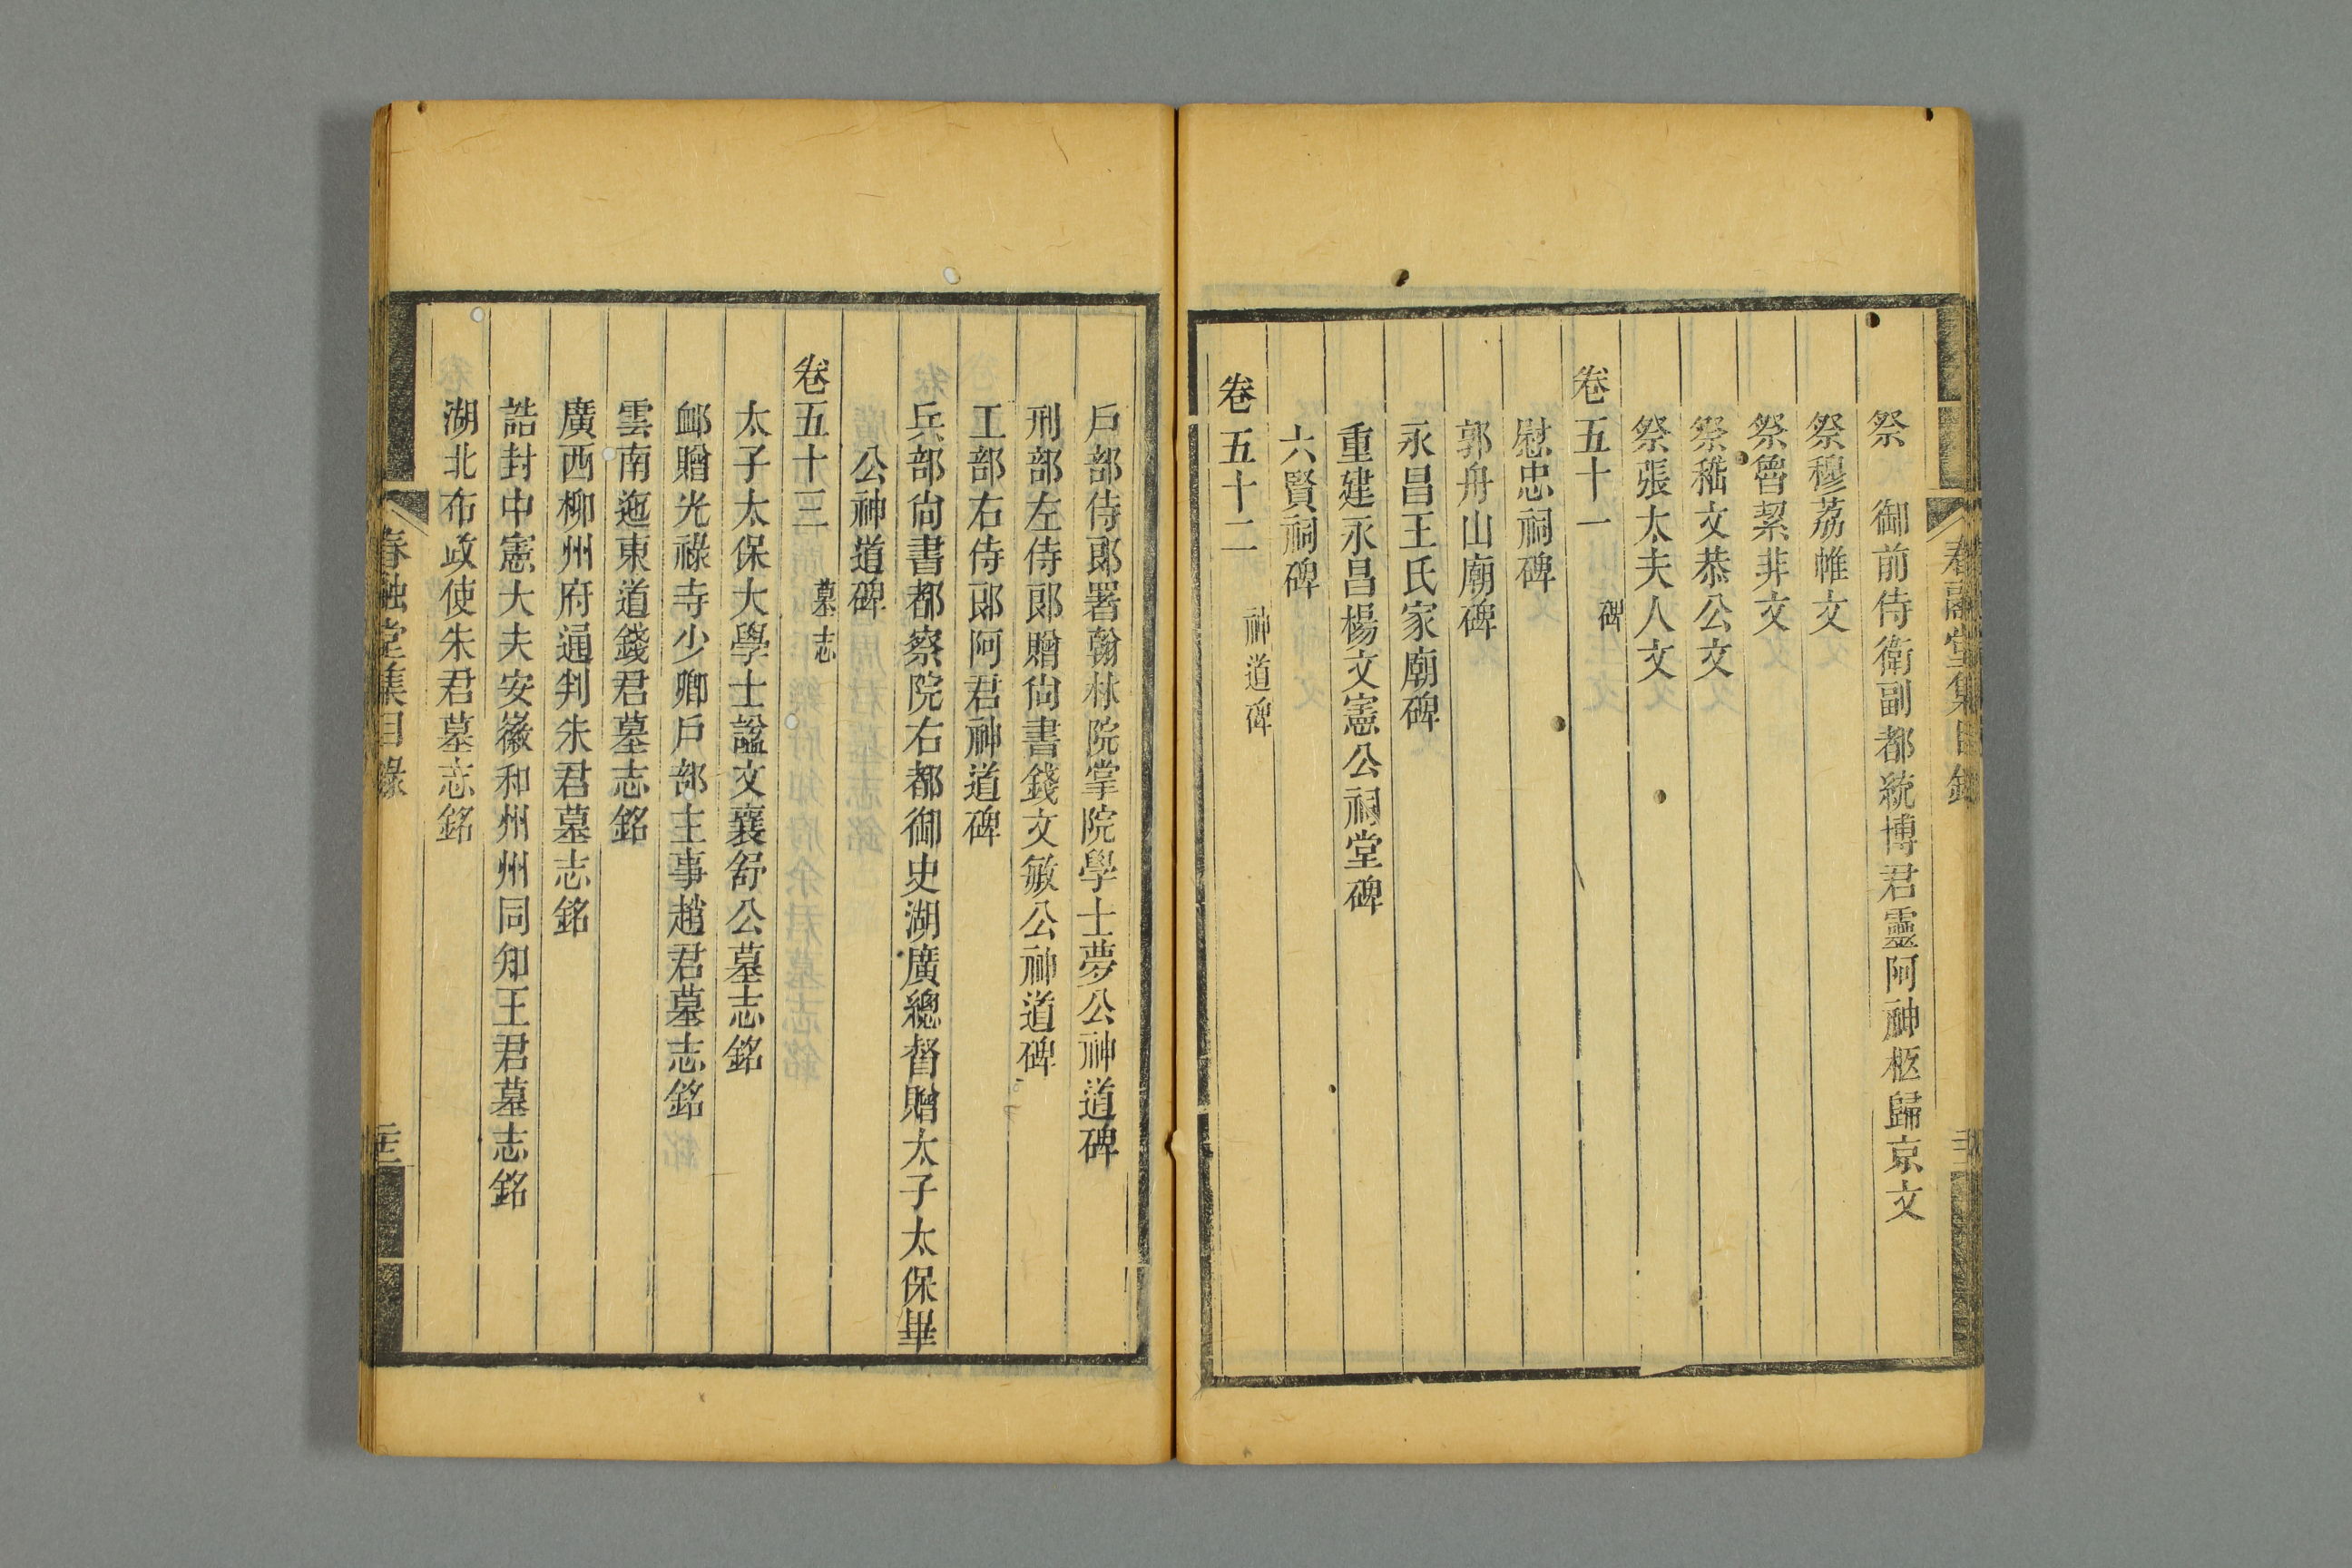 春融堂集目錄
祭 御前侍衛副都統博君靈阿神柩歸京文
祭穆荔帷文
祭魯絜非文
祭嵇文恭公文
祭張太夫人文
卷五十一 碑
慰忠祠碑
郭舟山廟碑
永昌王氏家廟碑
重建永昌楊文憲公祠堂碑
六賢祠碑
卷五十二 神道碑
戶部侍郎署翰林院掌院學士夢公神道碑
刑部左侍郎贈尙書錢文敏公神道碑
工部右侍郎阿君神道碑
兵部尙書都察院右都御史湖廣總督贈太子太保畢
公神道碑
卷五十三 墓志
太子太保大學士諡文襄舒公墓志銘
卹贈光祿寺少卿戶部主事趙君墓志銘
雲南迤東道錢君墓志銘
廣西柳州府通判朱君墓志銘
誥封中憲大夫安徽和州州同知王君墓志銘
湖北布政使朱君墓志銘
春融堂集目錄